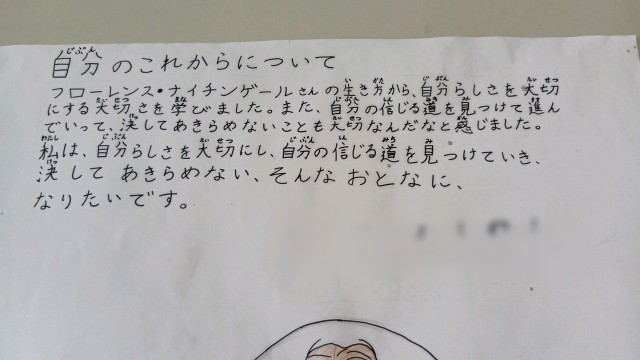 自分のこれからについて
フローレンス・ナイチンゲールさんの生き方から、自分らしさを大切
にする大切さを学びました。また、自分の信じる道を見つけて進ん
でいって、決してあきらめないことも大切なんだなと感じました。
私は、自分らしさを大切にし、自分の信じる道を見つけていき、
決して あきらめない、そんな おとなに、
なりたいです。